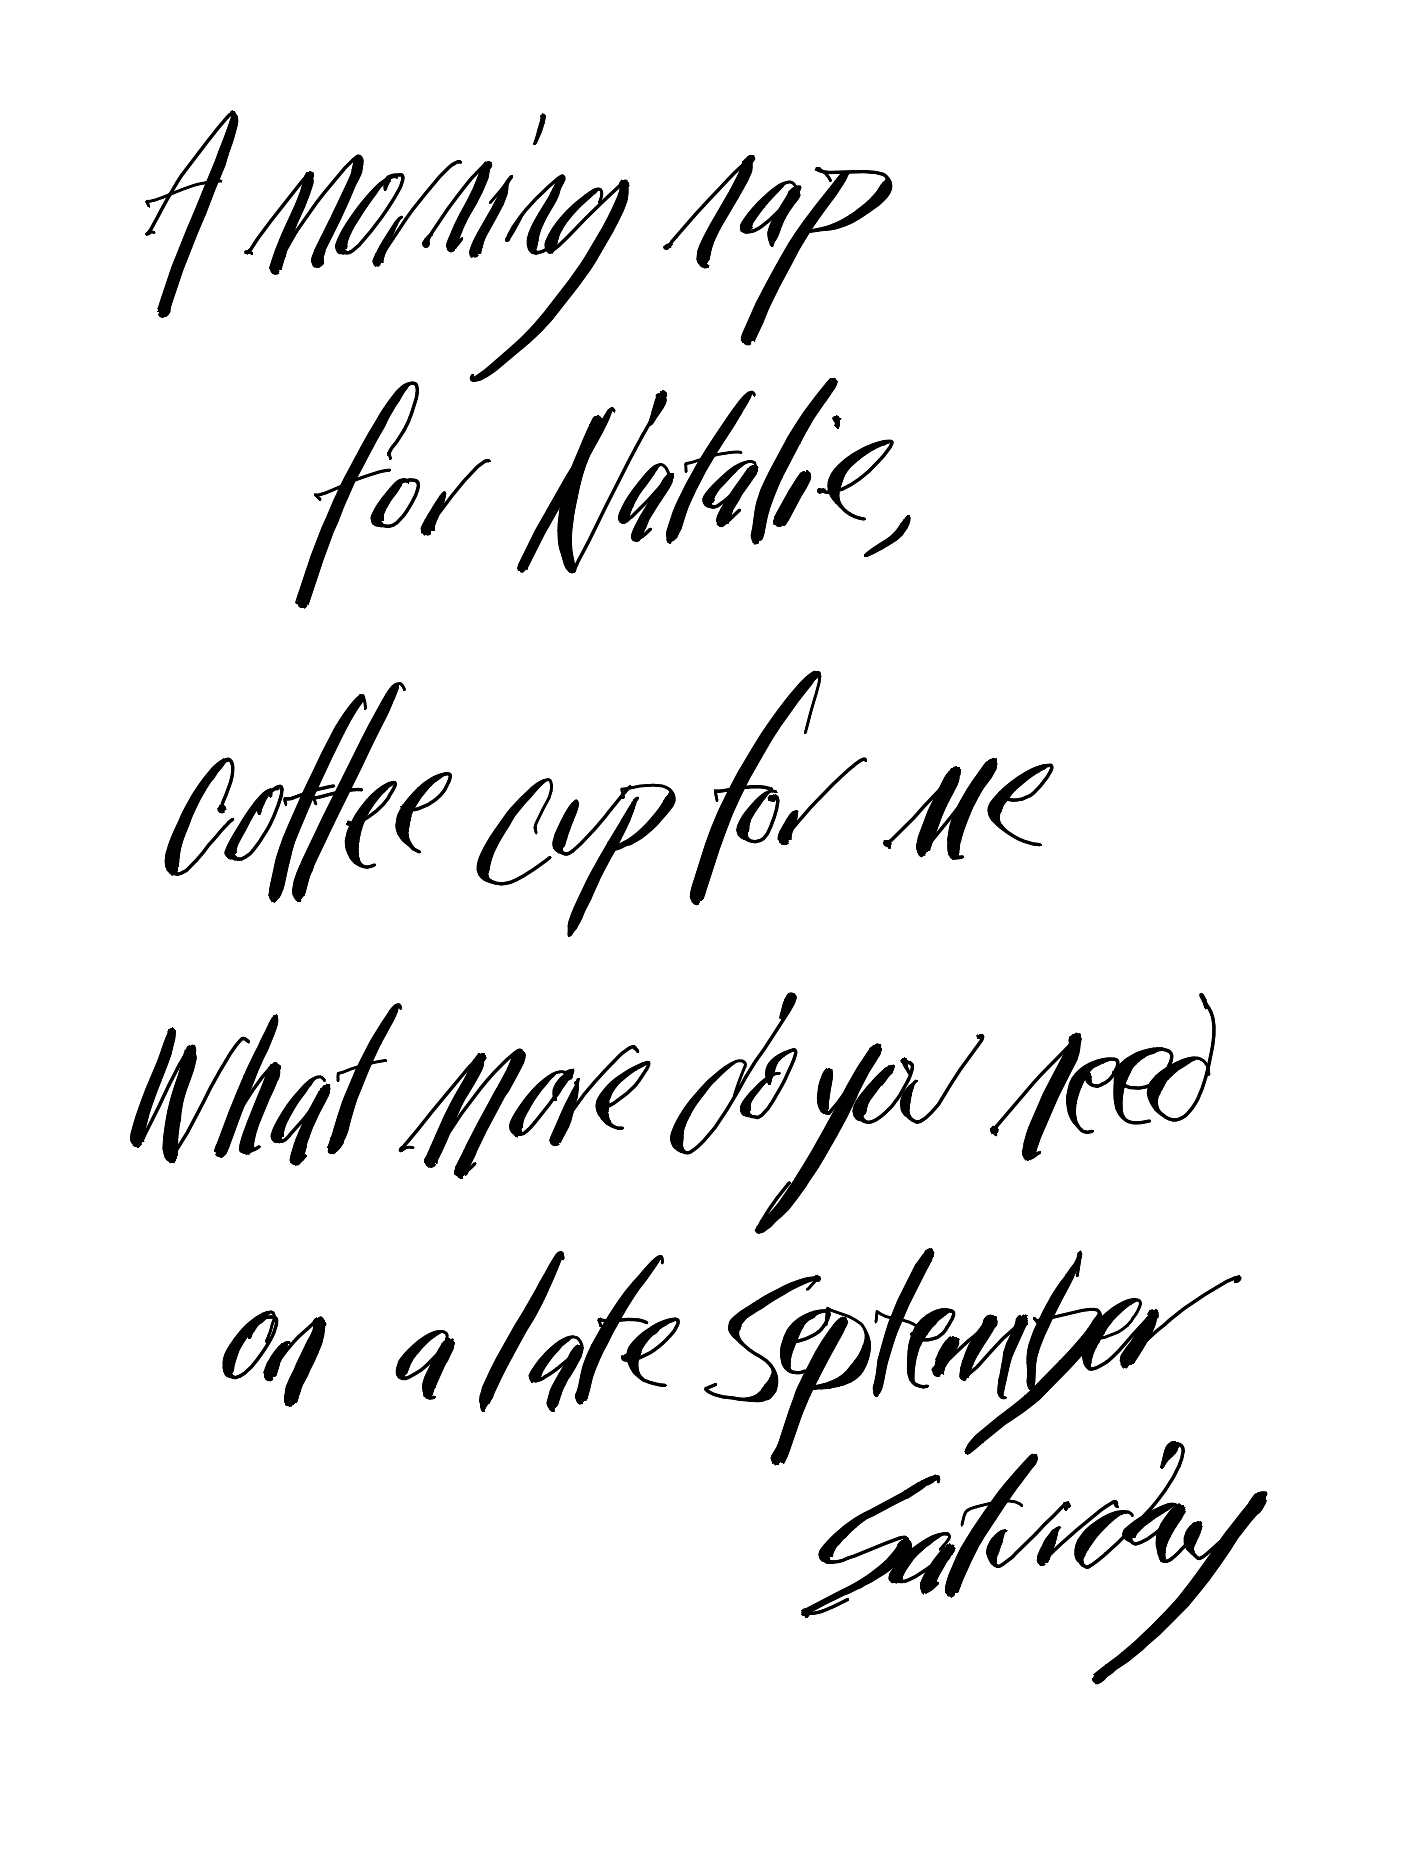 A morning nap
for Natalie,
coffee cup for me
What more do you need
on a late September
Saturday